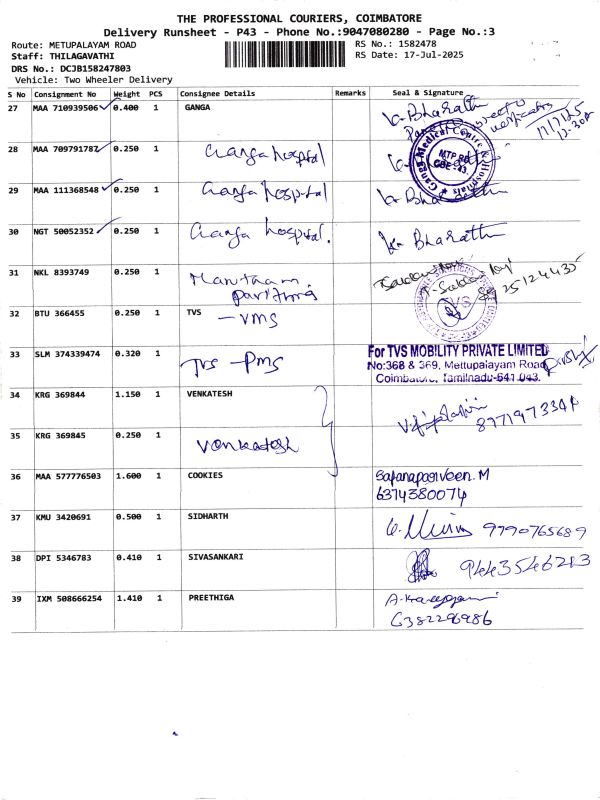 THE PROFESSIONAL COURIERS, COIMBATORE
Delivery Runsheet - P43 - Phone No.:9047080280 - Page No.:3
Route: METUPALAYAM ROAD
RS No.: 1582478
Staff: THILAGAVATHI
RS Date: 17-Jul-2025
DRS No.: DCJB158247803
Vehicle: Two Wheeler Delivery
S No Consignment No Weight PCS Consignee Details Remarks Seal & Signature
27 MAA 710939506 0.400 1 GANGA Bharath
17/7/25
28 MAA 709791787 0.250 1 Ganga hospital
Ganga Medical Centre & Hospitals
MTP Rd
CBE-43.
29 MAA 111368548 0.250 1 Ganga Hospital
30 NGT 50052352 0.250 1 Ganga hospital. Bharath
31 NKL 8393749 0.250 1 Marutham
32 BTU 366455 0.250 1 TVS
- VMS
33 SLM 374339474 0.320 1 TVS - PMS
For TVS MOBILITY PRIVATE LIMITED
No:368 & 369, Mettupalayam Road,
Coimbatore, Tamilnadu-641 043.
34 KRG 369844 1.150 1 VENKATESH
35 KRG 369845 0.250 1 Venkatesh
36 MAA 577776503 1.600 1 COOKIES Safanaparveen.M
6374380074
37 KMU 3420691 0.500 1 SIDHARTH 9790765689
38 DPI 5346783 0.410 1 SIVASANKARI 9443546213
39 IXM 508666254 1.410 1 PREETHIGA
6382296986